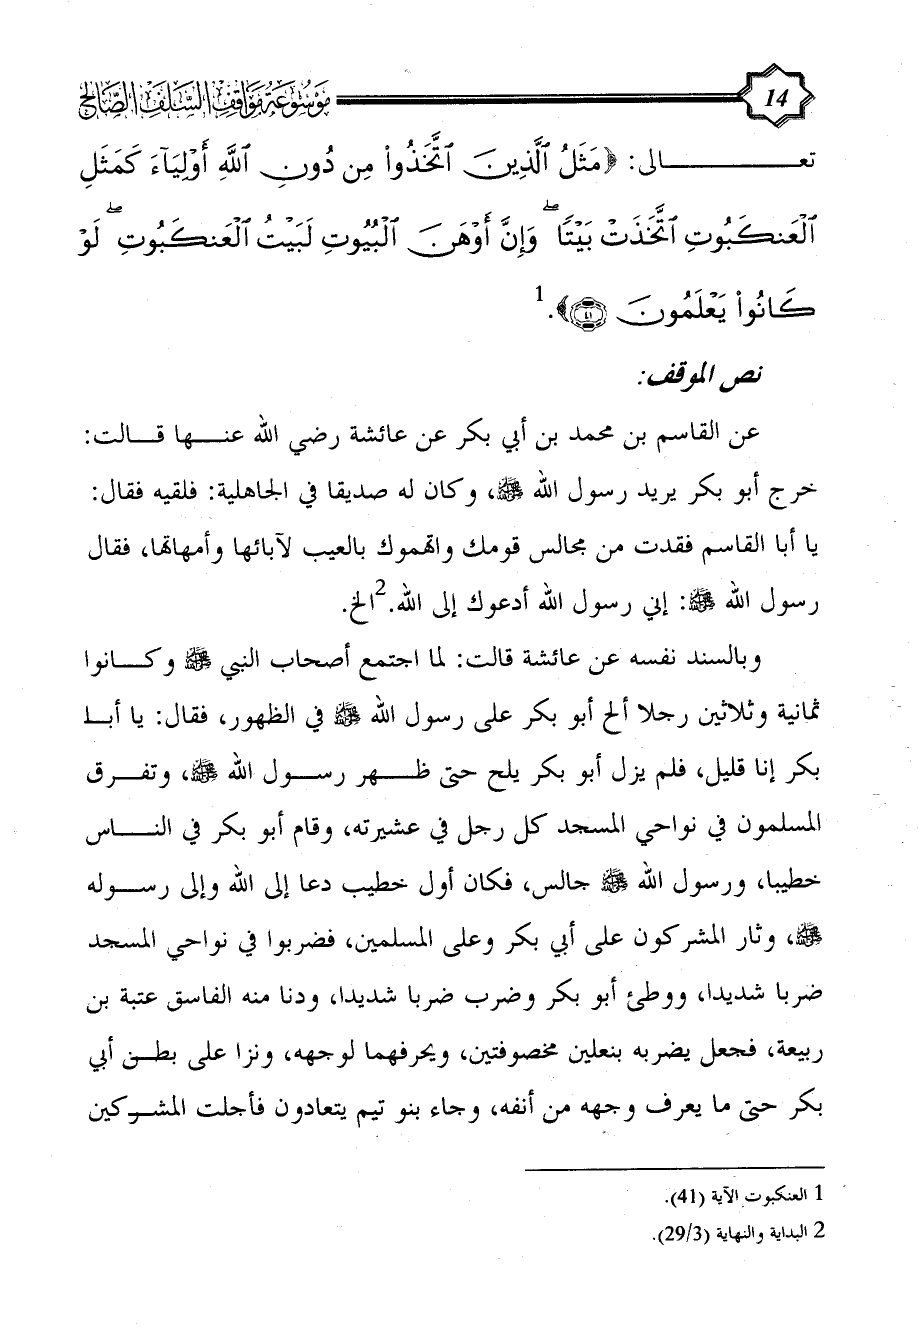 14 موسوعة مواقف السلف الصالح
تعالى: ﴿مَثَلُ ٱلَّذِينَ ٱتَّخَذُوا۟ مِن دُونِ ٱللَّهِ أَوْلِيَآءَ كَمَثَلِ
ٱلْعَنكَبُوتِ ٱتَّخَذَتْ بَيْتًا ۖ وَإِنَّ أَوْهَنَ ٱلْبُيُوتِ لَبَيْتُ ٱلْعَنكَبُوتِ ۖ لَوْ
كَانُوا۟ يَعْلَمُونَ ﴿٤١﴾﴾.1
نص الموقف:
عن القاسم بن محمد بن أبي بكر عن عائشة رضي الله عنها قالت:
خرج أبو بكر يريد رسول الله ﷺ، وكان له صديقا في الجاهلية: فلقيه فقال:
يا أبا القاسم فقدت من مجالس قومك واتهموك بالعيب لآبائها وأمهاتها، فقال
رسول الله ﷺ: إني رسول الله أدعوك إلى الله.2 الخ.
وبالسند نفسه عن عائشة قالت: لما اجتمع أصحاب النبي ﷺ وكانوا
ثمانية وثلاثين رجلا ألح أبو بكر على رسول الله ﷺ في الظهور، فقال: يا أبا
بكر إنا قليل، فلم يزل أبو بكر يلح حتى ظهر رسول الله ﷺ، وتفرق
المسلمون في نواحي المسجد كل رجل في عشيرته، وقام أبو بكر في الناس
خطيبا، ورسول الله ﷺ جالس، فكان أول خطيب دعا إلى الله وإلى رسوله
ﷺ، وثار المشركون على أبي بكر وعلى المسلمين، فضربوا في نواحي المسجد
ضربا شديدا، ووطئ أبو بكر وضرب ضربا شديدا، ودنا منه الفاسق عتبة بن
ربيعة، فجعل يضربه بنعلين مخصوفتين، ويحرفهما لوجهه، ونزا على بطن أبي
بكر حتى ما يعرف وجهه من أنفه، وجاء بنو تيم يتعادون فأجلت المشركين
1 العنكبوت الآية (41).
2 البداية والنهاية (29/3).